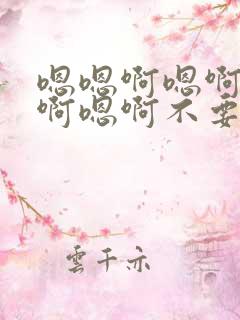 嗯嗯啊嗯啊
啊嗯啊不要
雲千亦